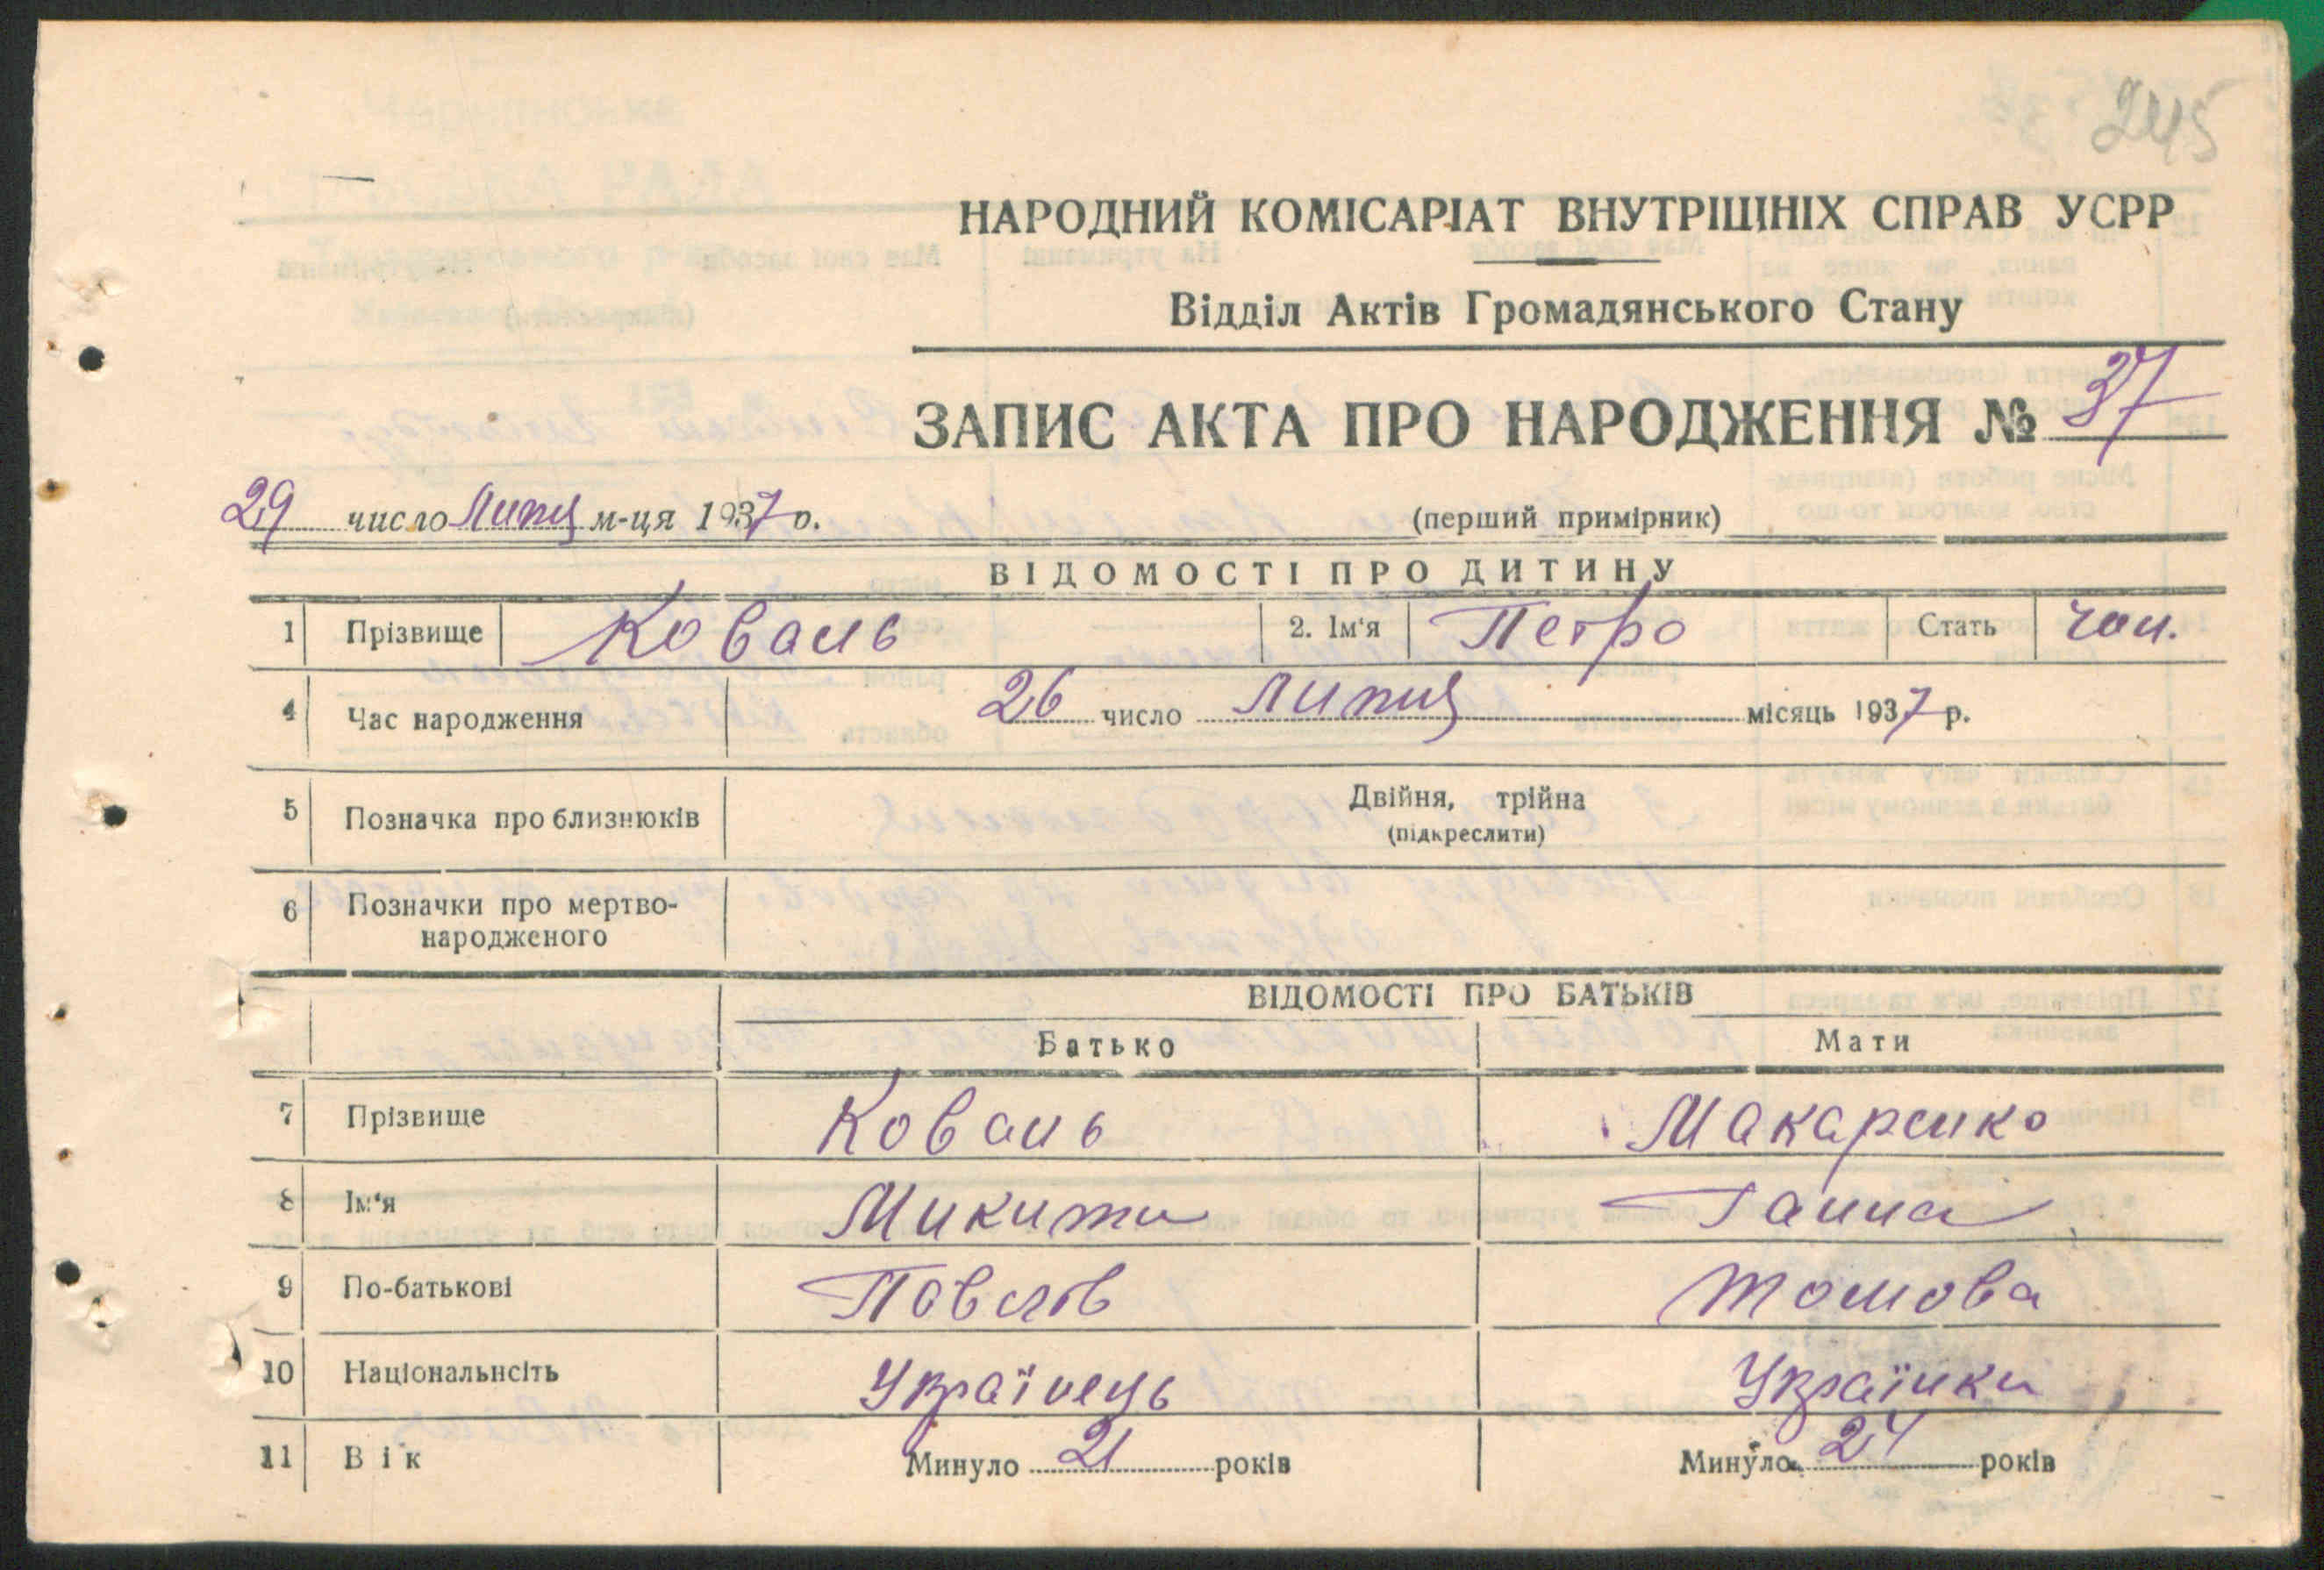 245
НАРОДНИЙ КОМІСАРІАТ ВНУТРІШНІХ СПРАВ УСРР
Відділ Актів Громадянського Стану
ЗАПИС АКТА ПРО НАРОДЖЕННЯ № 37
29 число Липця м-ця 1937 р. (перший примірник)
ВІДОМОСТІ ПРО ДИТИНУ
1 Прізвище Коваль 2. Ім'я Петро Стать чол.
4 Час народження 26 число Липця місяць 1937 р.
5 Позначка про близнюків Двійня, трійна
(підкреслити)
6 Позначки про мертво-
народженого
ВІДОМОСТІ ПРО БАТЬКІВ
Батько Мати
7 Прізвище Коваль Макаренко
8 Ім'я Микита Ганна
9 По-батькові Павлов Томова
10 Національнсіть Українець Українка
11 Вік Минуло 21 років Минуло 24 років